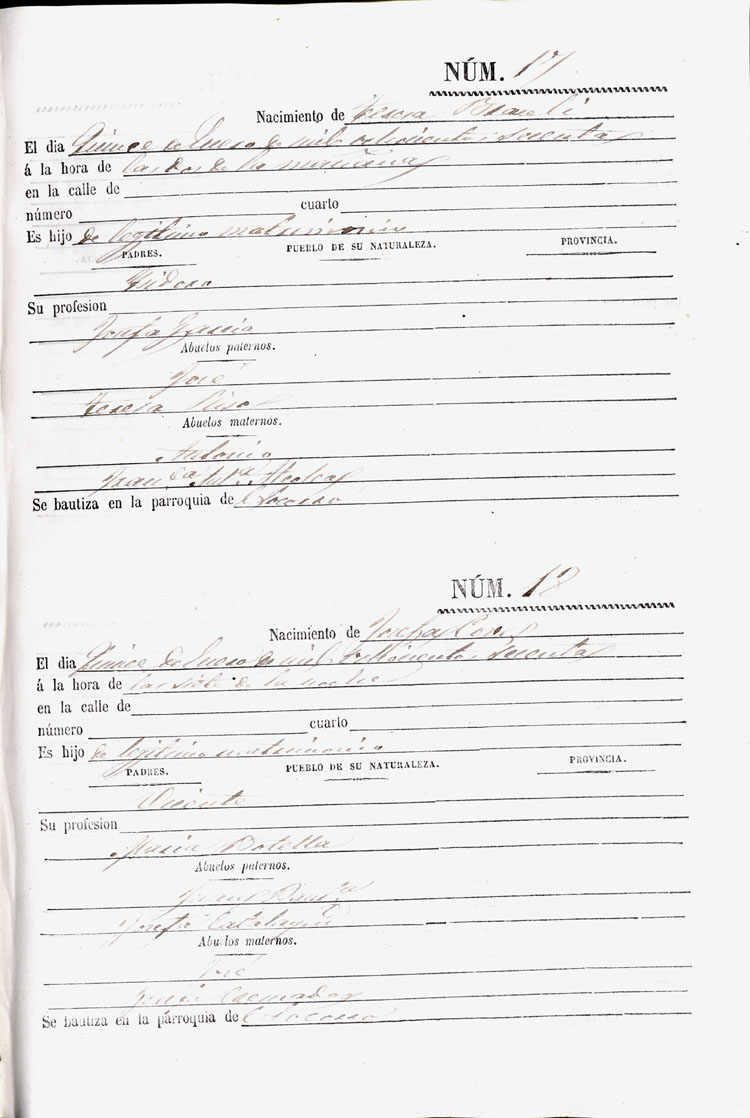 NÚM. 17
Nacimiento de Teresa
El dia Quince de Enero de mil ochocientos sesenta
á la hora de las dos de la mañana
en la calle de
número cuarto
Es hijo de legitimo matrimonio
PADRES. PUEBLO DE SU NATURALEZA. PROVINCIA.
Isidoro
Su profesion
Josefa Garcia
Abuelos paternos.
José
Teresa
Abuelos maternos.
Antonio
Franca Anta
Se bautiza en la parroquia de Socorro
NÚM. 18
Nacimiento de Josefa
El dia Quince de Enero de mil ochocientos sesenta
á la hora de las siete de la noche
en la calle de
número cuarto
Es hijo de legitimo matrimonio
PADRES. PUEBLO DE SU NATURALEZA. PROVINCIA.
Vicente
Su profesion
Maria Botella
Abuelos paternos.
Josefa
Abuelos maternos.
José
Josefa
Se bautiza en la parroquia de Socorro